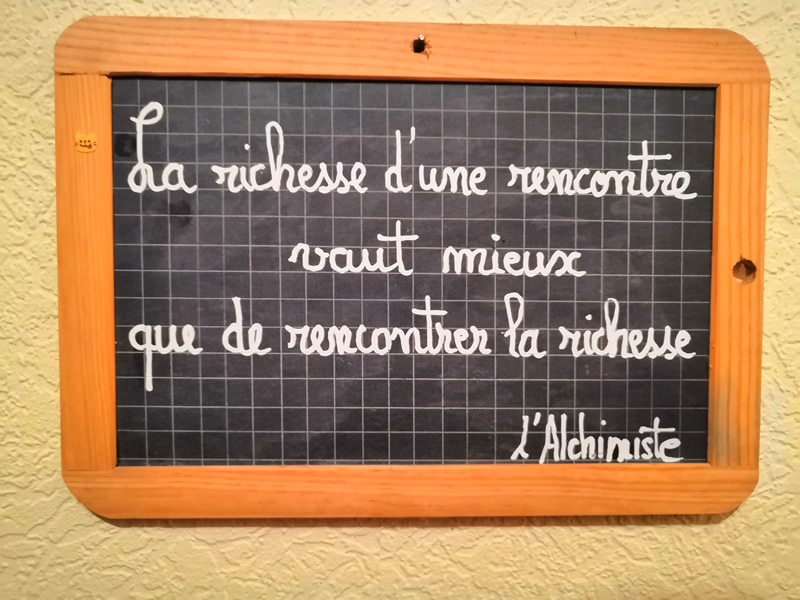 La richesse d'une rencontre
vaut mieux
que de rencontrer la richesse
L'Alchimiste